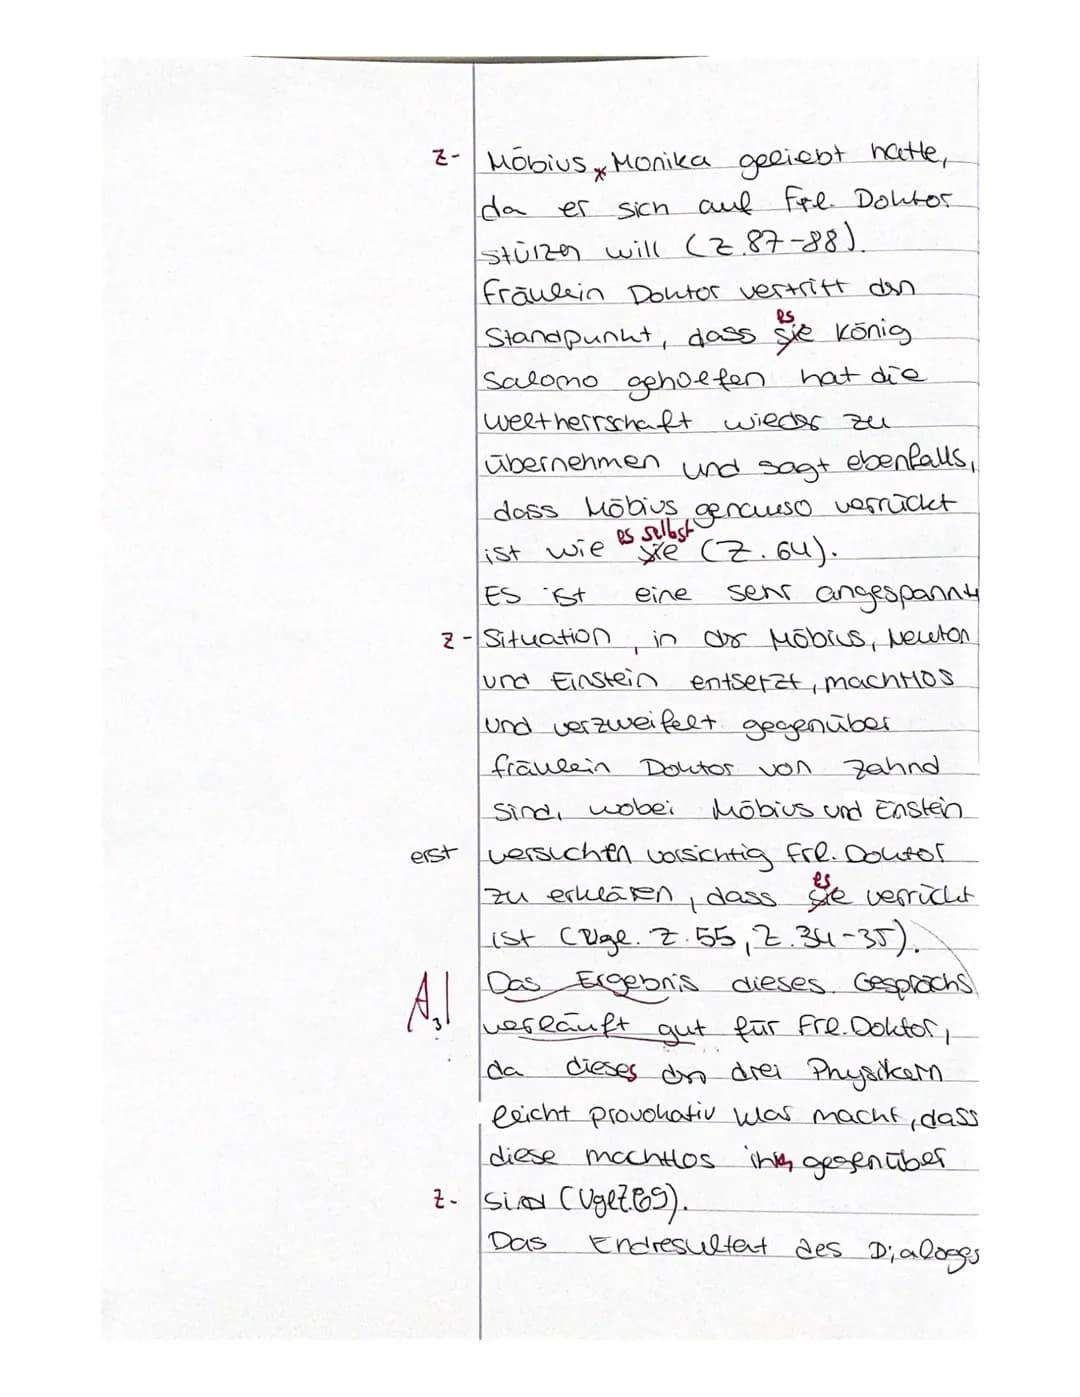 z- Möbius x Monika geliebt hatte,
da er sich auf Frl. Doktor
stürzen will (Z.87-88).
Fräulein Doktor vertritt den
es
Standpunkt, dass sie König
Salomo geholfen hat die
Weltherrschaft wieder zu
übernehmen und sagt ebenfalls,
dass Möbius genauso verrückt
es selbst
ist wie sie (Z.64).
Es ist eine sehr angespannte
z- Situation, in der Möbius, Newton
und Einstein entsetzt, machtlos
und verzweifelt gegenüber
Fräulein Doktor von Zahnd
sind, wobei Möbius und Enstein
erst versuchen vorsichtig Frl. Doktor
es
zu erklären, dass sie verrückt
ist (Vgl. Z.55, Z.34-35).
Das Ergebnis dieses Gesprächs
A,! verläuft gut für Frl. Doktor,
da dieses den drei Physikern
leicht provokativ klar macht, dass
diese machtlos ihm gegenüber
z- sind (Vgl Z.89).
Das Endresultat des Dialoges